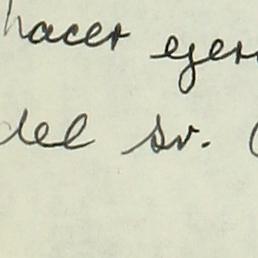 hacer ejer
del sr. (